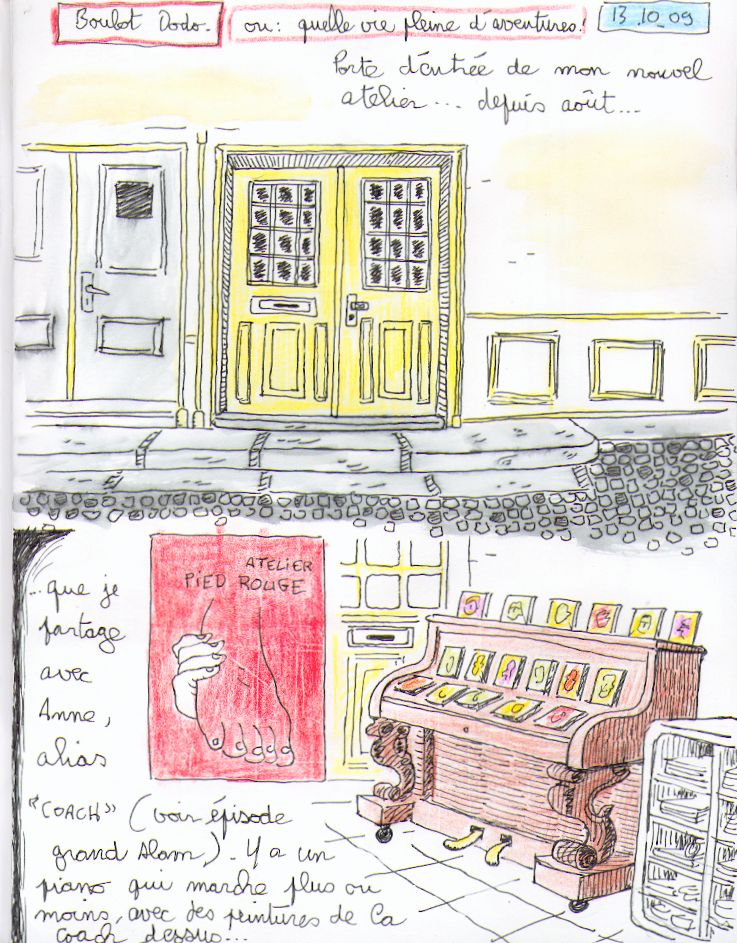 Boulot Dodo.
ou: quelle vie pleine d'aventures!
13_10_09
Porte d'entrée de mon nouvel
atelier... depuis août...
ATELIER
PIED ROUGE
...que je
partage
avec
Anne,
alias
"COACH" (voir épisode
grand Slam,). Y a un
piano qui marche plus ou
moins, avec des peintures de la
coach dessus...